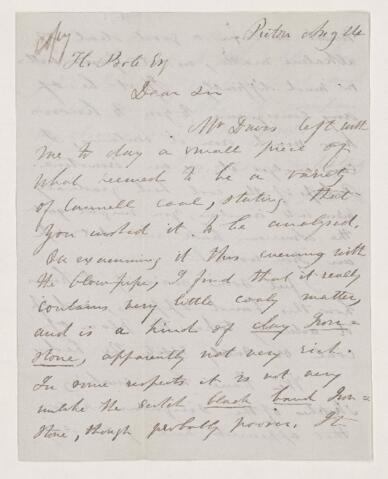 copy
Pictou Aug 24
H. Poole Esq
Dear Sir
Mr Daws left with
me to day a small piece of
what seemed to be a variety
of cannell coal, stating that
you wished it to be analysed.
On examining it this evening with
the blowpipe, I find that it really
contains very little coaly matter,
and is a kind of clay Iron=
stone, apparently not very rich.
In some respects it is not very
unlike the scotch black band Iron=
stone, though probably poorer. It